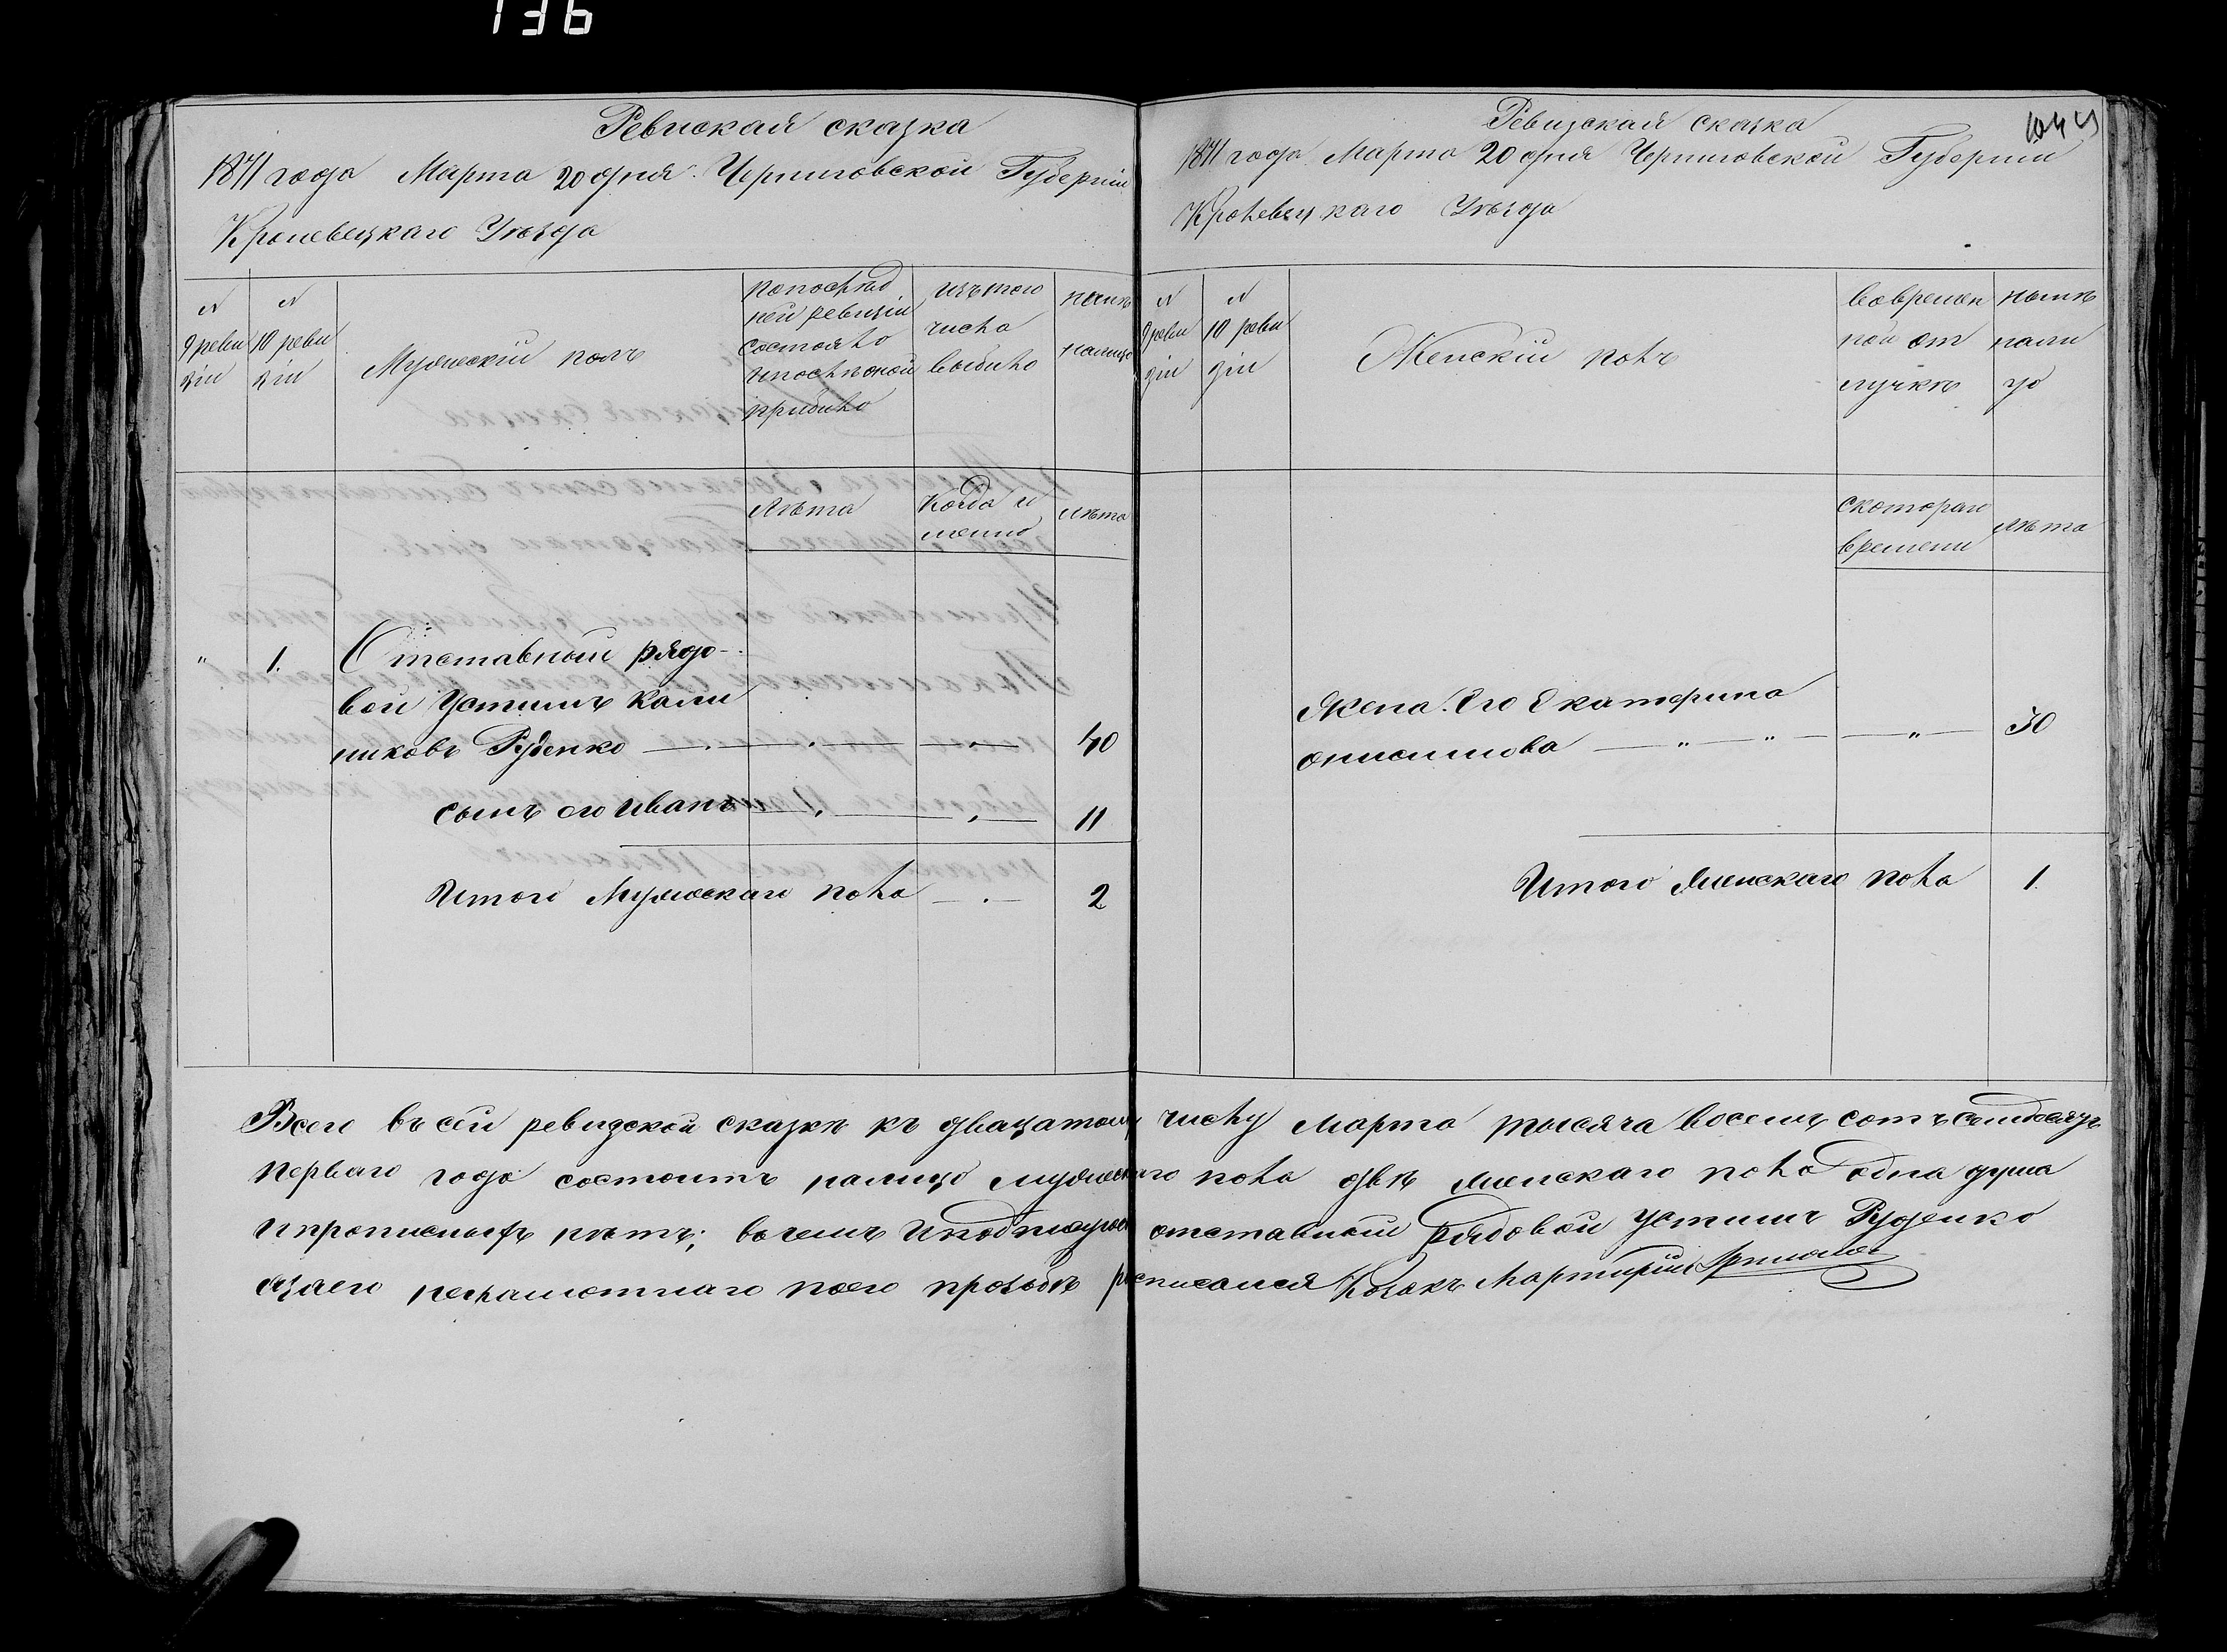 136
Ревиская сказка
1871 года Марта 20 дня Черниговской Губерніи
Кролевецкаго Уѣзда
N 9 ревизіи
N 10 ревизіи
Мужескій полъ
по послѣд
ней ревизіи
состояло
и послѣ оной
прибило
изъ того
числа
выбило
нынѣ
налицо
Лѣта
Когда и
менно
Лѣта
" 1. Отставный рядо-
вой Устимъ Кали
никовъ Руденко 40
сынъ его Иванъ 11
Итого Мужескаго пола 2
Ревизская сказка
1871 года Марта 20 дня Черниговской Губерніи
Кролевецкаго Уѣзда
N 9 ревизіи
N 10 ревизіи
Женскій полъ
во времен
ной от
лучкѣ
нынѣ
нали
цо
с котораго
времени
Лѣта
Жена Его Екатерина
онисимова " " " 30
Итого Женскаго пола 1.
Всего въ сей ревизской сказкѣ къ двацатому числу Марта тысяча восемь сотъ семдесятъ
перваго года состоитъ налицо мужескаго пола двѣ женскаго пола одна душа
и прописныхъ нѣтъ; въ чемъ и подписуюсь отставный рядовой Устимъ Руденко
а за его неграмотнаго по его прозьбѣ росписался Козакъ Мартирій